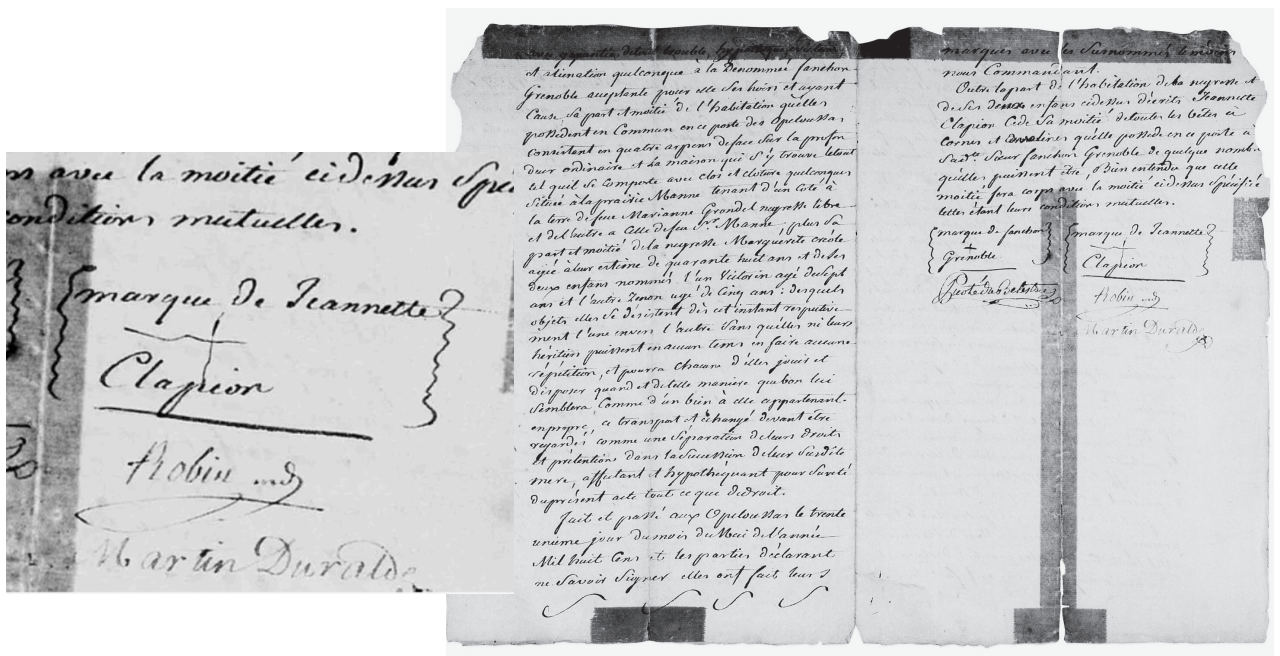 ns avec la moitié cidessus Spé
conditions mutuelles.
marque de Jeannette
Clapion
Robin
Martin Duralde
avec garantie de tout trouble, hypothèque eviction
et aliénation quelconque à la Denommée fanchon
Grenoble acceptante pour elle Ses hoirs et ayant
Cause, Sa part et moitié de l'habitation quelles
possèdent en Commun en ce poste des Opeloussas
Consistent en quatre arpens de face Sur la profon
deur ordinaire et La maison qui S'y trouve le tout
tel quil Se Comporte avec clos et cloture quelconques
Située à la prairie Manne tenant d'un Coté à
la terre de feue Marianne Grondel negresse libre
et de l'autre a Celle de feu Sr. Manne, plus Sa
part et moitié de la negresse Marguerite créole
agée à leur estime de quarante huit ans et de ses
deux enfans nommés l'un Victorin agé de Sept
ans et l'autre Zenon agé de Cinq ans: desquels
objets elles Se désistent dès cet instant respective
ment l'une envers l'autre Sans quelles ni leurs
héritiers puissent en aucun tems en faire aucune
répétition, et pourra Chacune d'elles jouir et
disposer quand et de telle manière que bon lui
Semblera, Comme d'un bien à elle appartenant
en propre, ce transport et échange devant être
regardés comme une Séparation de leurs droits
et prétention dans la Succession de leur Susdite
mere, affectant et hypothéquant pour Sureté
du présent acte tout ce que de droit.
fait et passé aux Opeloussas le trente
unième jour du mois de Mai de l'année
Mil huit Cens et les parties déclarant
ne Savoir Signer elles ont fait leurs
marques avec les Surnommés temoins
nous Commandant.
Outre la part de l'habitation de la negresse et
de Ses deux enfans cidessus décrits Jeannette
Clapion Cede Sa moitié de toutes les bêtes à
cornes et cavalines qu'elle possede en ce poste à
Sad.te Sœur fanchon Grenoble de quelque nombre
quelles puissent être, Bien entendu que cette
moitié fera corps avec la moitié cidessus Spécifiée
telles étant leurs conditions mutuelles.
marque de fanchon
Grenoble
marque de Jeannette
Clapion
Robin
Martin Duralde